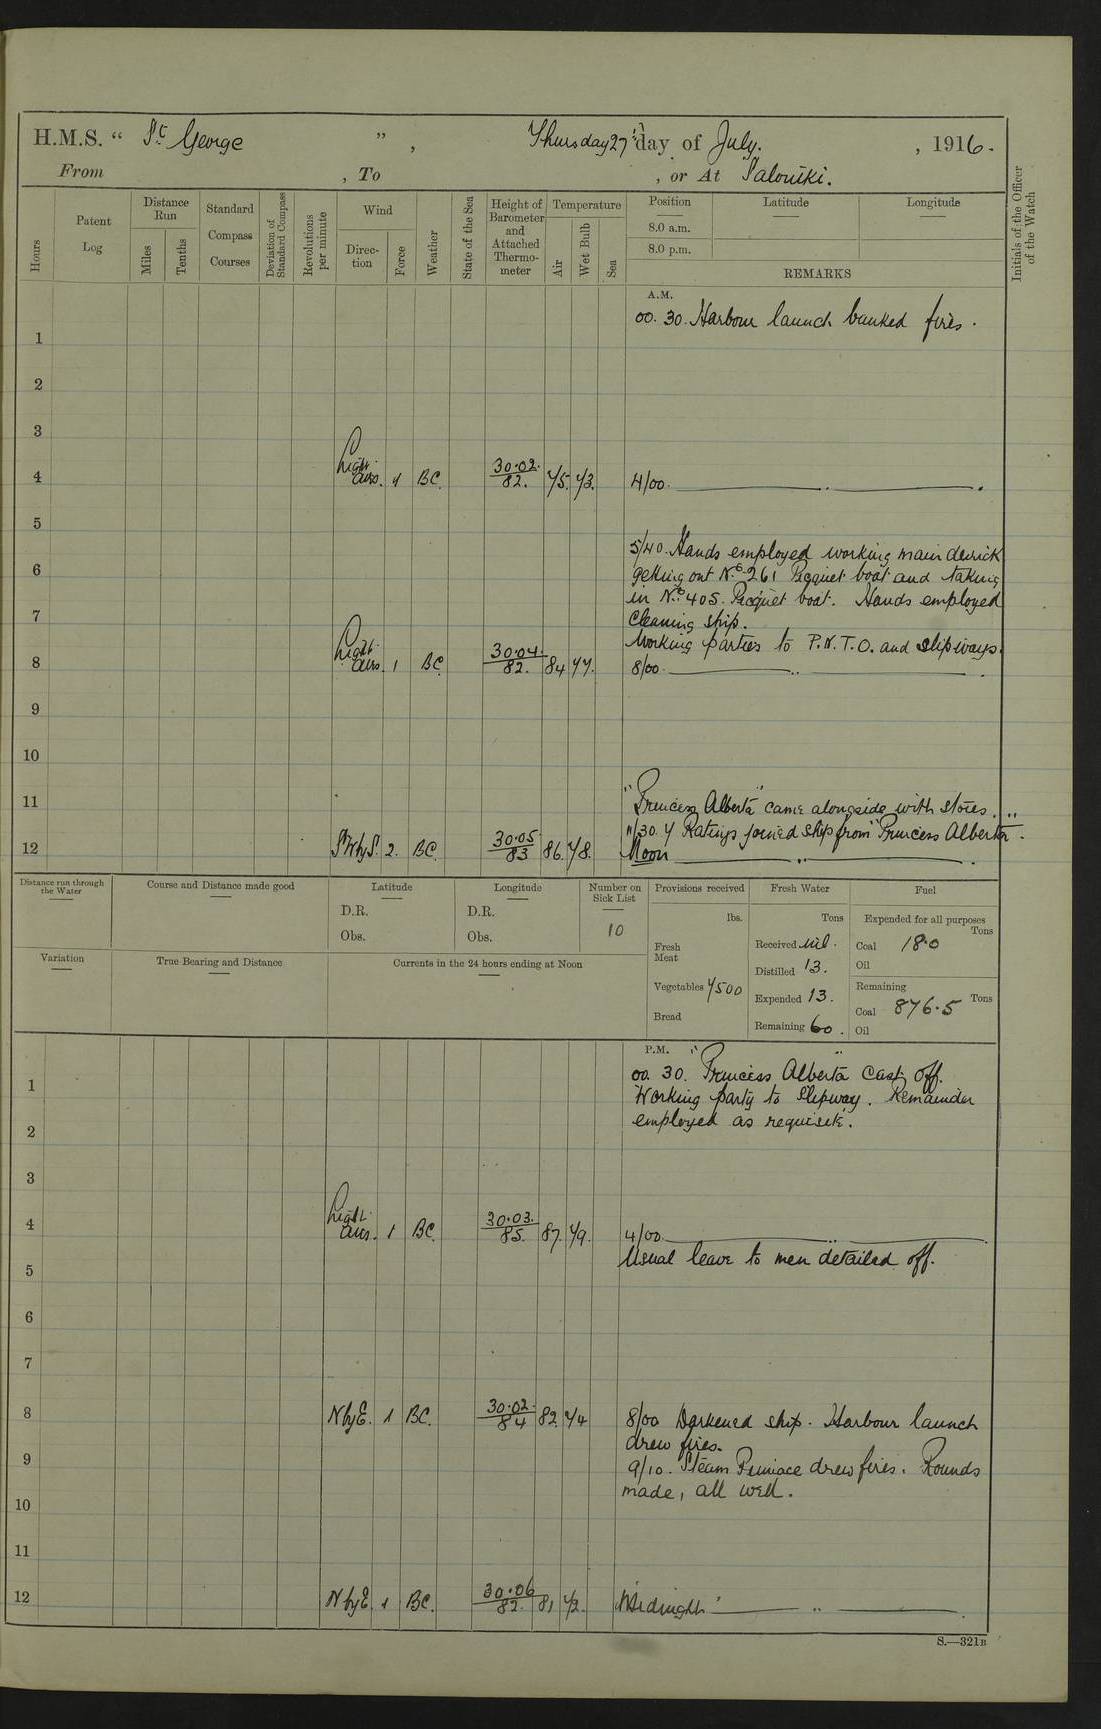 H.M.S. “ St George ” , Thursday 27th day of July. , 1916.
From , To , or At Saloniki.
Hours
Patent Log
Distance Run
Miles
Tenths
Standard Compass Courses
Deviation of Standard Compass
Revolutions per minute
Wind
Direction
Force
Weather
State of the Sea
Height of Barometer and Attached Thermometer
Temperature
Air
Wet Bulb
Sea
Position
Latitude
Longitude
8.0 a.m.
8.0 p.m.
REMARKS
Initials of the Officer of the Watch
A.M.
00. 30. Harbour launch banked fires.
1
2
3
4 Light airs. 1 BC. 30.02. 82. 75. 73. 4/00.
5
5/40. Hands employed working main derrick
6 getting out No. 261 Picquet boat and taking
in No. 405. Picquet boat. Hands employed
7 cleaning ship.
Working parties to P.N.T.O. and Slipways.
8 Light airs 1 BC. 30.04. 82. 84 77. 8/00
9
10
11 "Princess Alberta" came alongside with stores.
11/30. 7 Ratings joined ship from "Princess Alberta".
12 SWbyS. 2. BC. 30.05 83 86. 78. Noon
Distance run through the Water
Course and Distance made good
Latitude
D.R.
Obs.
Longitude
D.R.
Obs.
Number on Sick List
10
Provisions received
lbs.
Fresh Meat
Vegetables 7500
Bread
Fresh Water
Tons
Received nil.
Distilled 13.
Expended 13.
Remaining 60.
Fuel
Expended for all purposes
Tons
Coal 18.0
Oil
Remaining
Coal 876.5 Tons
Oil
Variation
True Bearing and Distance
Currents in the 24 hours ending at Noon
P.M.
00. 30. "Princess Alberta" cast off.
1 Working party to Slipway. Remainder
employed as requisite.
2
3
4 Light airs. 1 BC. 30.03. 85. 87. 79. 4/00
Usual leave to men detailed off.
5
6
7
8 NbyE. 1 BC. 30.02. 84 82. 74 8/00 Darkened ship. Harbour launch
drew fires.
9 9/10. Steam Pinnace drew fires. Rounds
made, all well.
10
11
12 NbyE. 1 BC. 30.06 82. 81 72. Midnight
S.—321B